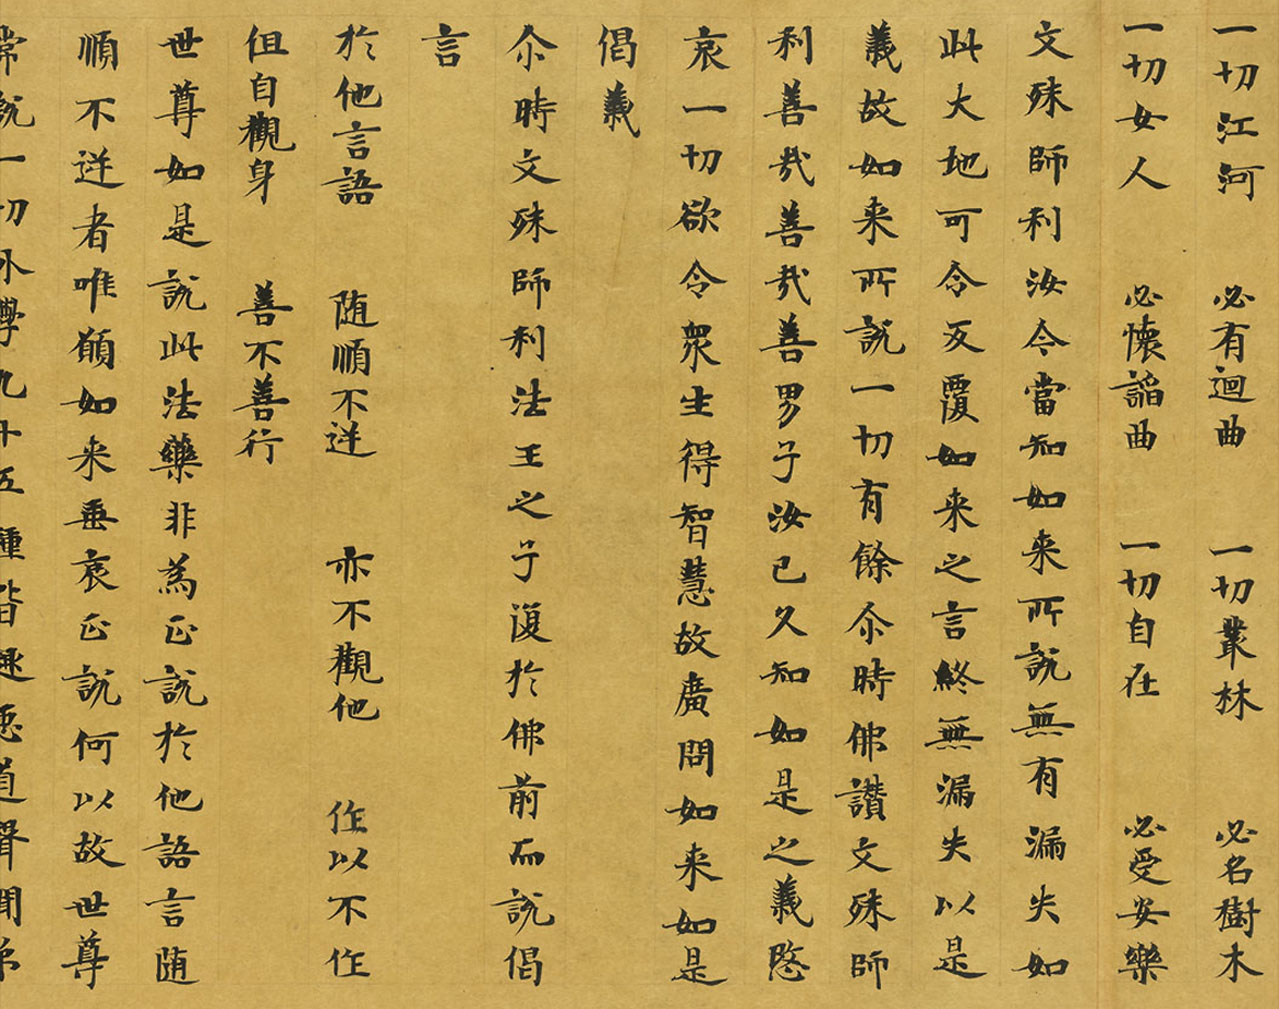 一切江河 必有迴曲 一切藂林 必名樹木
一切女人 必懷諂曲 一切自在 必受安樂
文殊師利汝今當知如来所説無有漏失如
此大地可令反覆如来之言終無漏失以是
義故如来所説一切有餘尒時佛讚文殊師
利善㢤善㢤善男子汝已久知如是之義愍
哀一切欲令衆生得智慧故廣問如来如是
偈義
尒時文殊師利法王之子復於佛前而説偈
言
於他言語 随順不逆 亦不觀他 作以不作
但自觀身 善不善行
世尊如是説此法藥非為正説於他語言随
順不逆者唯願如来垂哀正説何以故世尊
常説一切外學九十五種皆趣惡道聲聞弟